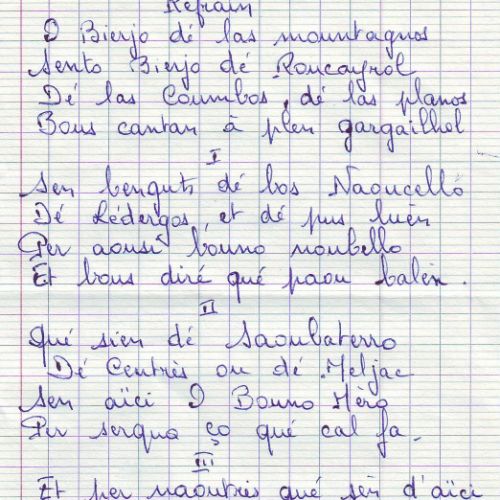 Refrain
O Bierjo dé las mountagnos
Sento Bierjo dé Roucayrol
Dé las Coumbos, dé las planos
Bous cantan à plen gargailhol
I
Sen benguts dé bos Naoucello
Dé Lédergos, et dé pus luèn
Per aousi bouno noubello
Et bous diré qué paou balèn.
II
Qué sien dé Saoubaterro
Dé Centrès ou dé Meljac
Sen aïci O Bouno Mèro
Per serqua ço qué cal fa.
III
Et per naoutrès qué sèn d'aïci